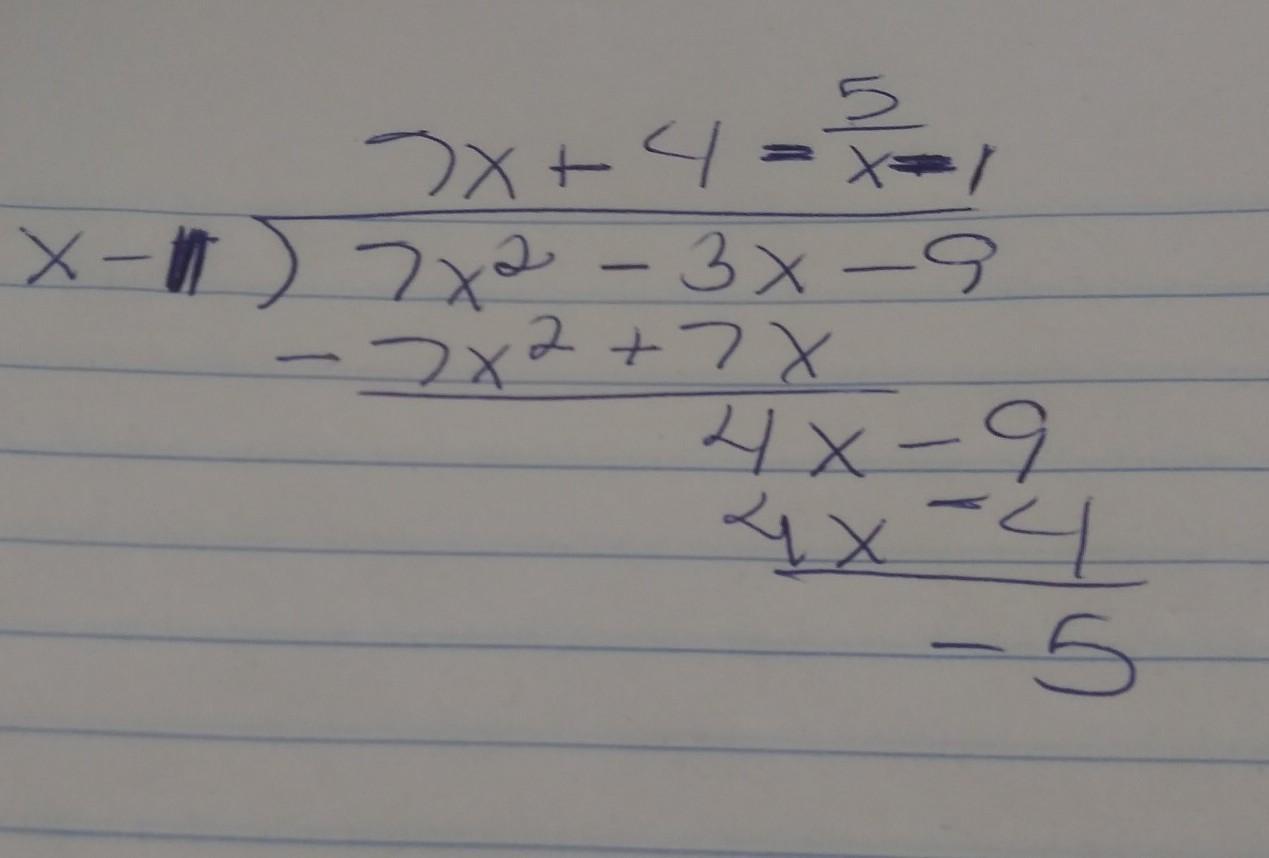 7x + 4 - 5/(x-1)
x - 1 ) 7x² - 3x - 9
- 7x² + 7x
4x - 9
4x - 4
- 5